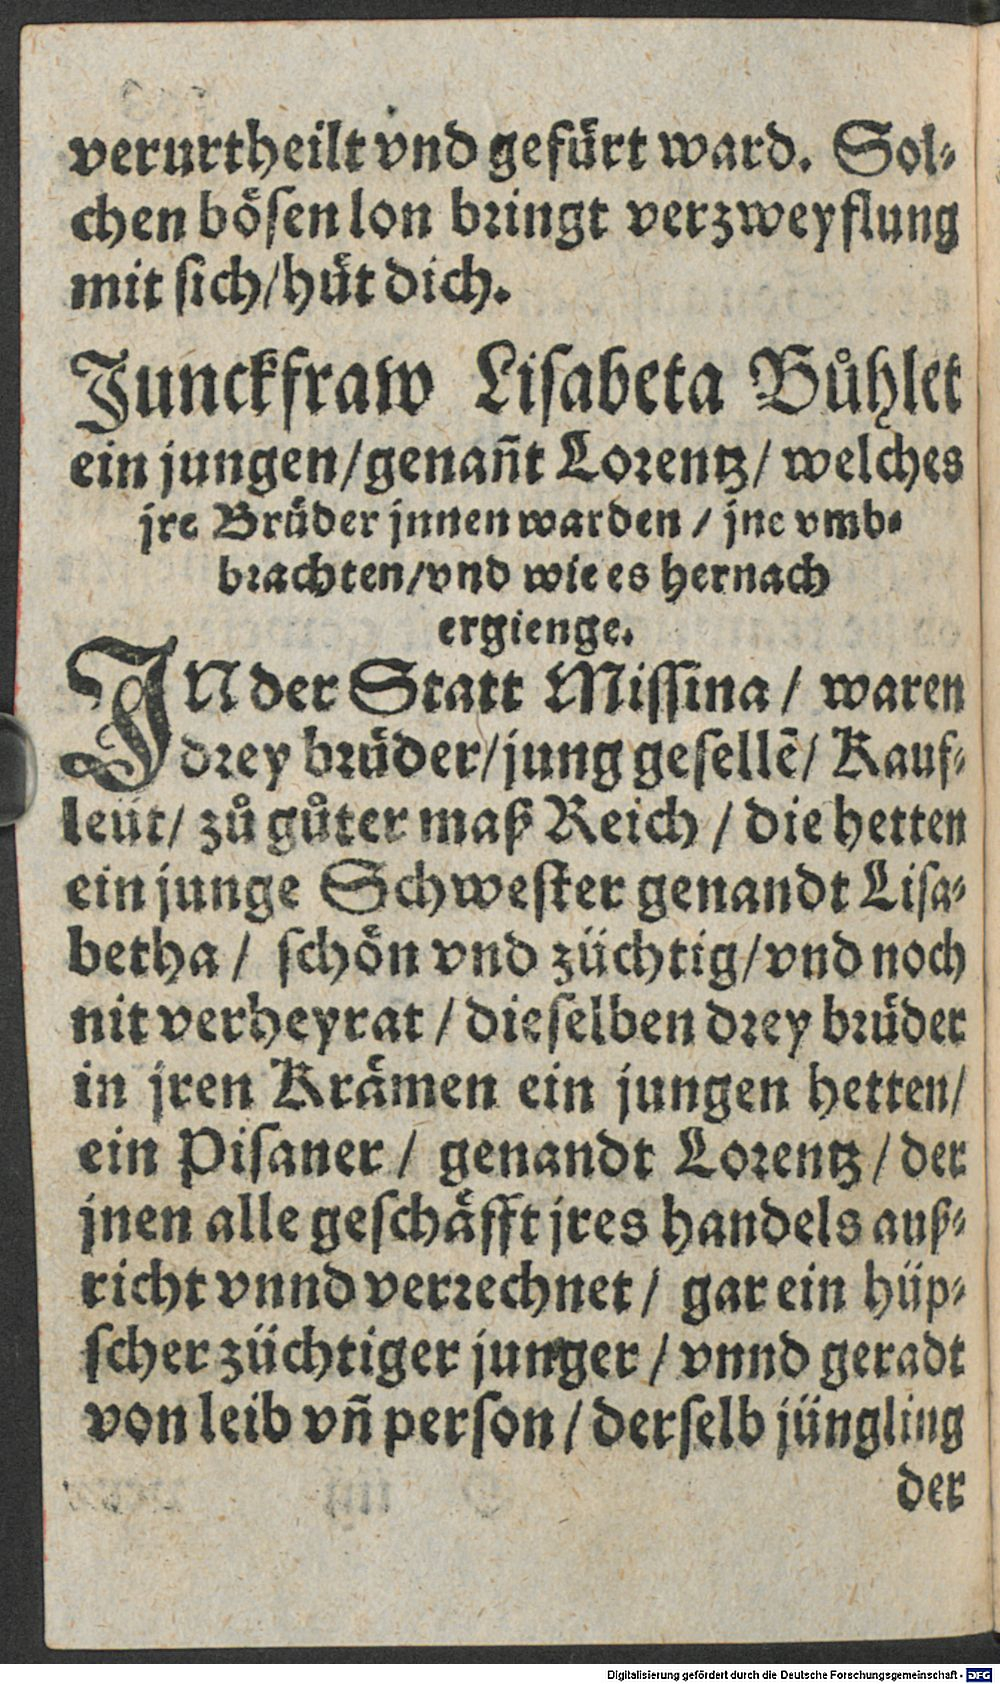 verurtheilt vnd gefuͤrt ward. Sol⸗
chen boͤsen lon bringt verzweyflung
mit sich/huͤt dich.
Junckfraw Lisabeta Buͦhlet
ein jungen/genañt Lorentz/ welches
jre Bruͤder jnnen warden / jne vmb⸗
brachten/vnd wie es hernach
ergienge.
IN der Statt Missina / waren
drey bruͤder/jung gesellē/ Kauf⸗
leüt/ zuͦ guͦter maß Reich / die hetten
ein junge Schwester genandt Lisa⸗
betha / schoͤn vnd züchtig/vnd noch
nit verheyrat / dieselben drey bruͤder
in jren Kraͤmen ein jungen hetten/
ein Pisaner / genandt Lorentz / der
jnen alle geschaͤfft jres handels auß⸗
richt vnnd verrechnet / gar ein hüp⸗
scher züchtiger junger / vnnd geradt
von leib vñ person / derselb jüngling
der
Digitalisierung gefördert durch die Deutsche Forschungsgemeinschaft - DFG